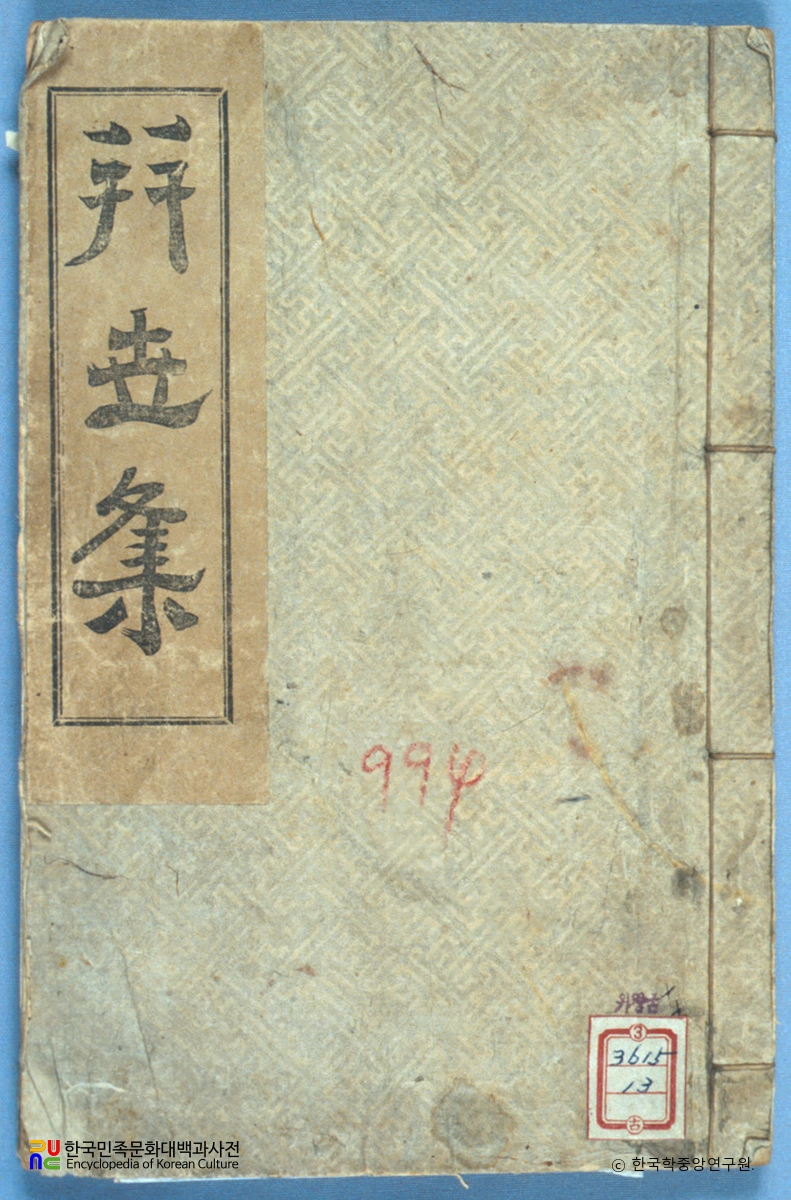 幷世集
994
③
3615
13
古
한국민족문화대백과사전
Encyclopedia of Korean Culture
ⓒ 한국학중앙연구원.